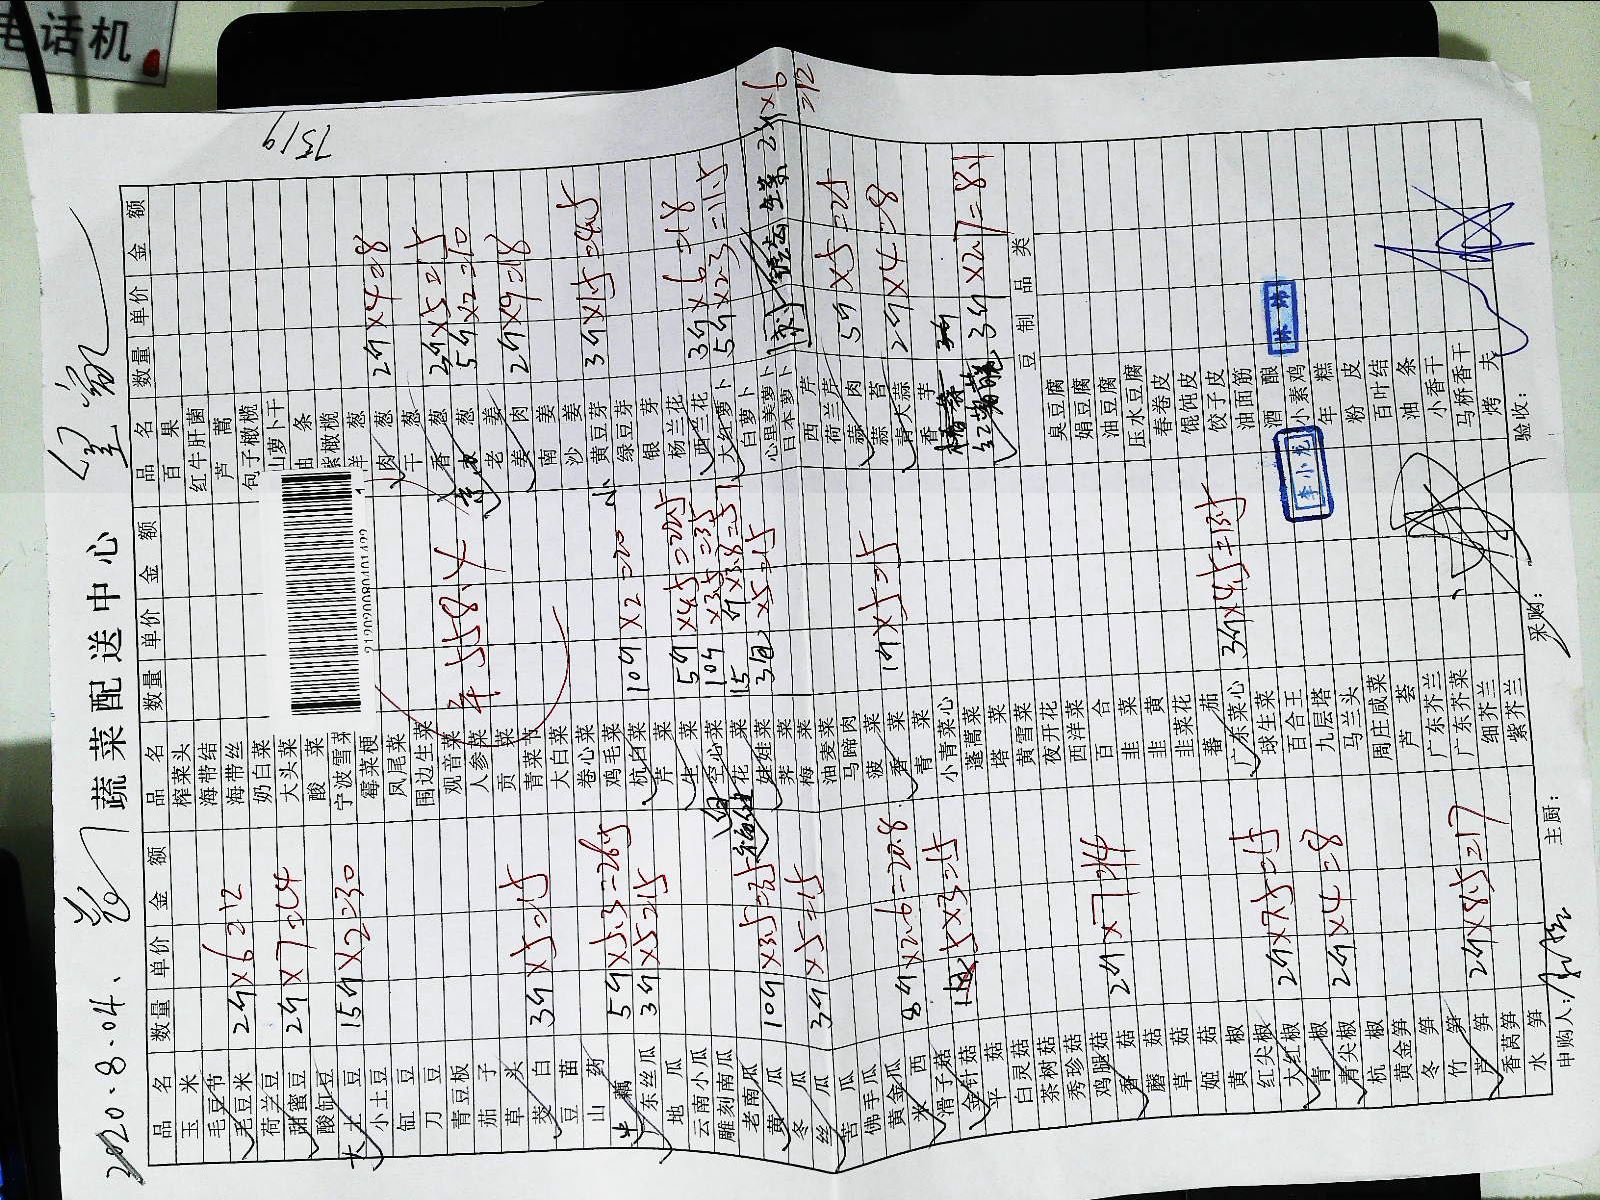 电话机
7519
2020.8.04.
蔬菜配送中心
品名 数量 单价 金额
玉米
毛豆节
毛豆米 2斤×6=12
荷兰豆
甜蜜豆 2斤×7=14
酸缸豆
大土豆 15斤×2=30
小土豆
缸豆
刀豆
青豆板
茄子
草头
茭白 3斤×5=15
豆苗
山药
藕 5斤×5.3=26.5
广东丝瓜 3斤×5=15
地瓜
云南小瓜
雕刻南瓜
老南瓜
黄瓜 10斤×3.5=35
冬瓜
丝瓜 3斤×5=15
苦瓜
佛手瓜
黄金瓜
米西 8斤×2.6=20.8
滑子菇
金针菇 5×3=15
平菇
白灵菇
茶树菇
秀珍菇
鸡腿菇
香菇 2斤×7=14
蘑菇
草菇
姬菇
黄椒
红尖椒
大红椒 2斤×7.5=15
青椒
青尖椒 2斤×4=8
杭椒
黄金笋
冬笋
竹笋
莴笋 2斤×8.5=17
香莴笋
水笋
品名 数量 单价 金额
榨菜头
海带结
海带丝
奶白菜
大头菜
酸菜
宁波雪菜
霉菜梗
凤尾菜
围边生菜
观音菜
人参菜
贡菜
青菜节
大白菜
卷心菜
鸡毛菜
杭白菜 10斤×2=20
芹菜
生菜 5斤×4.5=22.5
空心菜 10斤×3.5=35
花菜 15斤×3.8=57
娃娃菜 3包×5=15
荠菜
梅菜
油麦菜
马蹄肉
菠菜
香菜 1斤×5=15
青菜
小青菜心
蓬蒿菜
塔菜
黄雪菜
夜开花
西洋菜
百合
韭菜
韭黄
韭菜花
番茄
广东菜心 3斤×4.5=13.5
球生菜
百合王
九层塔
马兰头
周庄咸菜
芦荟
广东芥兰
广东芥菜
细芥兰
紫芥兰
¥558.4
品名 数量 单价 金额
百果
红牛肝菌
芦蒿
包子橄榄
山萝卜干
油条
紫橄榄
洋葱
肉葱 2斤×4=8
干葱
香葱 3斤×5=15
京葱 5斤×2=10
老姜
姜肉 2斤×9=18
南姜
沙姜
黄豆芽 3斤×1.5=4.5
绿豆芽
银芽
杨兰花
西兰花 3斤×6=18
大红萝卜 5斤×2.3=11.5
白萝卜
心里美萝卜
日本萝卜
西芹
荷兰芹
蒜肉 5斤×5=25
蒜苔
青大蒜 2斤×4=8
香芋
2斤×6=12
3斤×2.7=8.1
豆制品类
臭豆腐
娟豆腐
油豆腐
压水豆腐
春卷皮
馄饨皮
饺子皮
油面筋
酒酿
小素鸡
年糕
粉皮
百叶结
油条
小香干
马桥香干
烤夫
李小龙
申购人:
主厨:
采购:
验收: